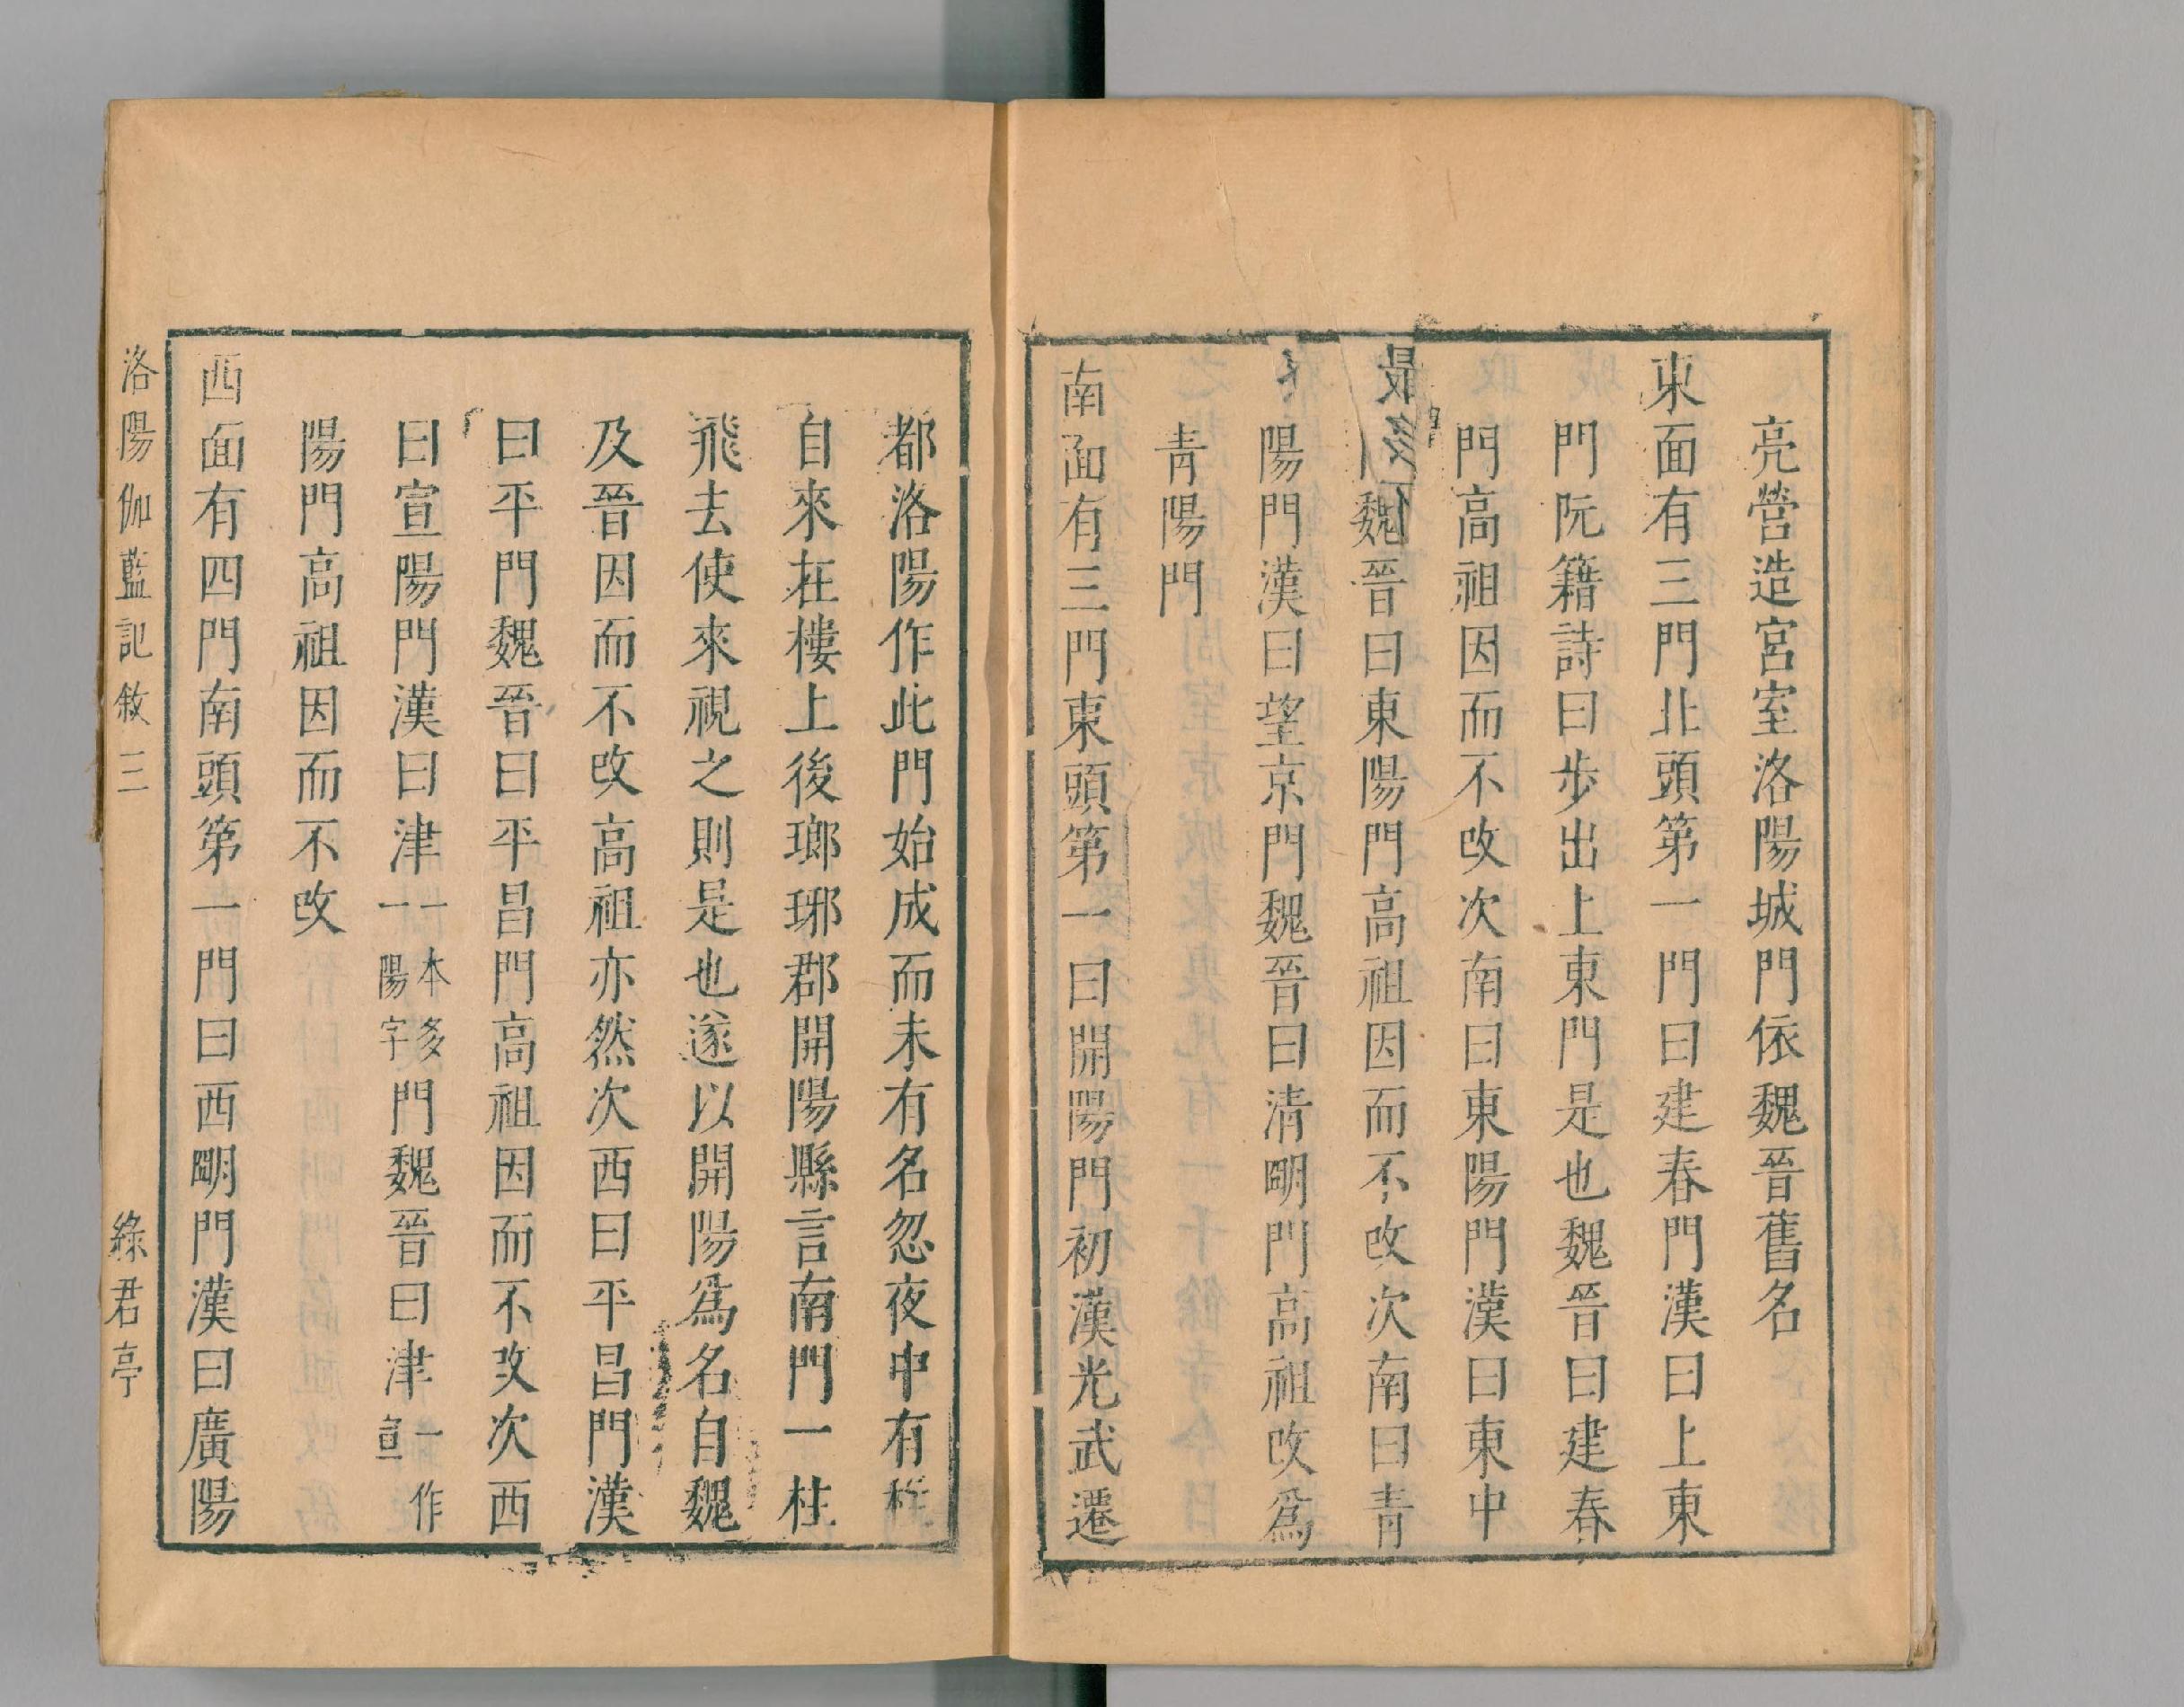 亮營造宮室洛陽城門依魏晉舊名
東面有三門北頭第一門曰建春門漢曰上東
門阮籍詩曰步出上東門是也魏晉曰建春
門高祖因而不改次南曰東陽門漢曰東中
魏晉曰東陽門高祖因而不改次南曰青
陽門漢曰望京門魏晉曰清明門高祖改爲
青陽門
南面有三門東頭第一曰開陽門初漢光武遷
都洛陽作此門始成而未有名忽夜中有柱
自來在樓上後瑯琊郡開陽縣言南門一柱
飛去使來視之則是也遂以開陽爲名自魏
及晉因而不改高祖亦然次西曰平昌門漢
曰平門魏晉曰平昌門高祖因而不改次西
曰宣陽門漢曰津一本多一陽字門魏晉曰津一作宣
陽門高祖因而不改
西面有四門南頭第一門曰西明門漢曰廣陽
洛陽伽藍記敘 三 綠君亭
最多